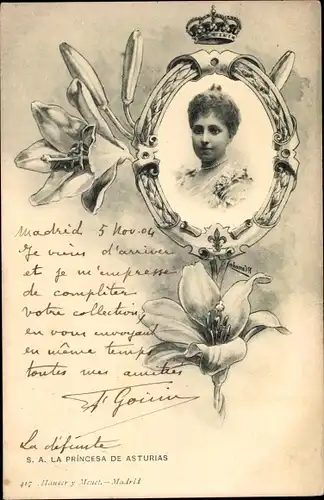 Madrid 5 Nov. 04
Je viens d'arriver
et je m'empresse
de compliter
votre collection,
en vous envoyant
en même temps
toutes mes amitiés
La défunte
S. A. LA PRINCESA DE ASTURIAS
417 Hauser y Menet.—Madrid